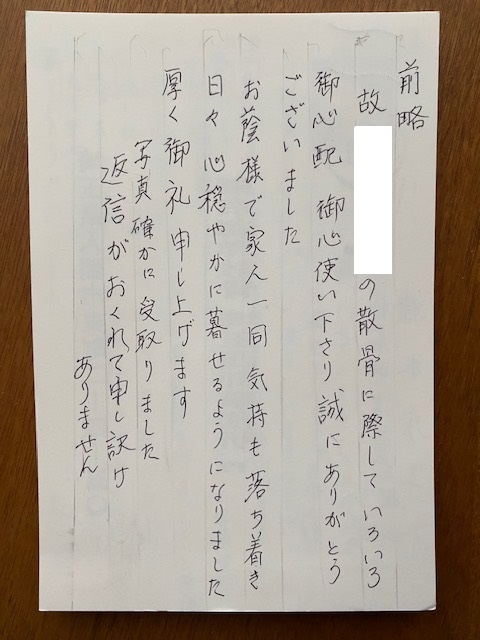 前略
故
の散骨に際していろいろ
御心配 御心使い下さり 誠にありがとう
ございました
お蔭様で家人一同 気持も落ち着き
日々 心穏やかに暮せるようになりました
厚く御礼申し上げます
写真確かに受取りました
返信がおくれて申し訳け
ありません